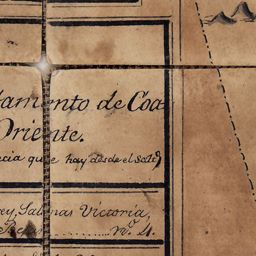 tamento de Coa
Oriente.
cia que hay desde el Salt)
rey, Salinas Victoria,
Nº 4.